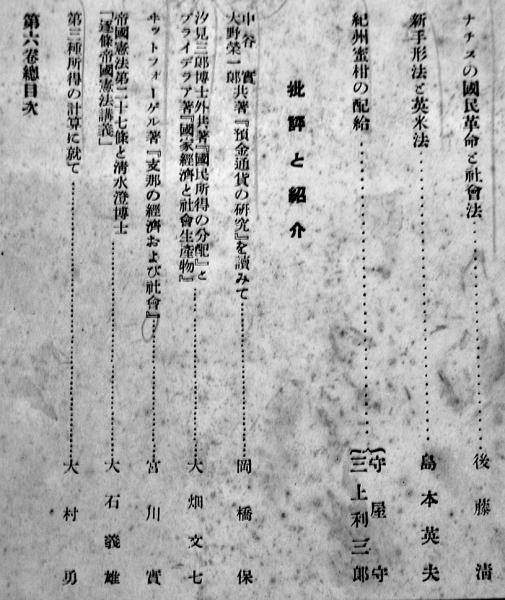 ナチスの國民革命と社會法 後藤清
新手形法と英米法 島本英夫
紀州蜜柑の配給 {守屋守
三上利三郎
批評と紹介
中谷實
大野榮一郎共著『預金通貨の研究』を讀みて 岡橋保
汐見三郎博士外共著『國民所得の分配』と
プライデラア著『國家經濟と社會生產物』 大畑文七
ヰットフォーゲル著『支那の經濟および社會』 宮川實
帝國憲法第二十七條と清水澄博士
「逐條帝國憲法講義」 大石義雄
第三種所得の計算に就て 大村勇
第六卷總目次